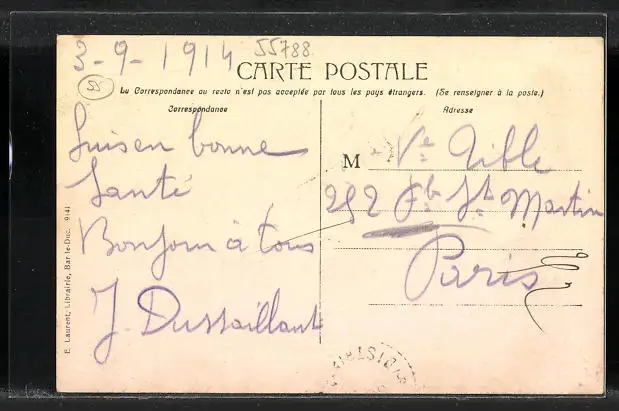 3-9-1914
55788
55
CARTE POSTALE
La Correspondance au recto n'est pas acceptée par tous les pays étrangers. (Se renseigner à la poste.)
Correspondance
Adresse
Suis en bonne
Santé
Bonjour à tous
J. Dussaillant
M
Ve Tible
252 Fb St Martin
Paris
E. Laurent, Librairie, Bar-le-Duc. 9141